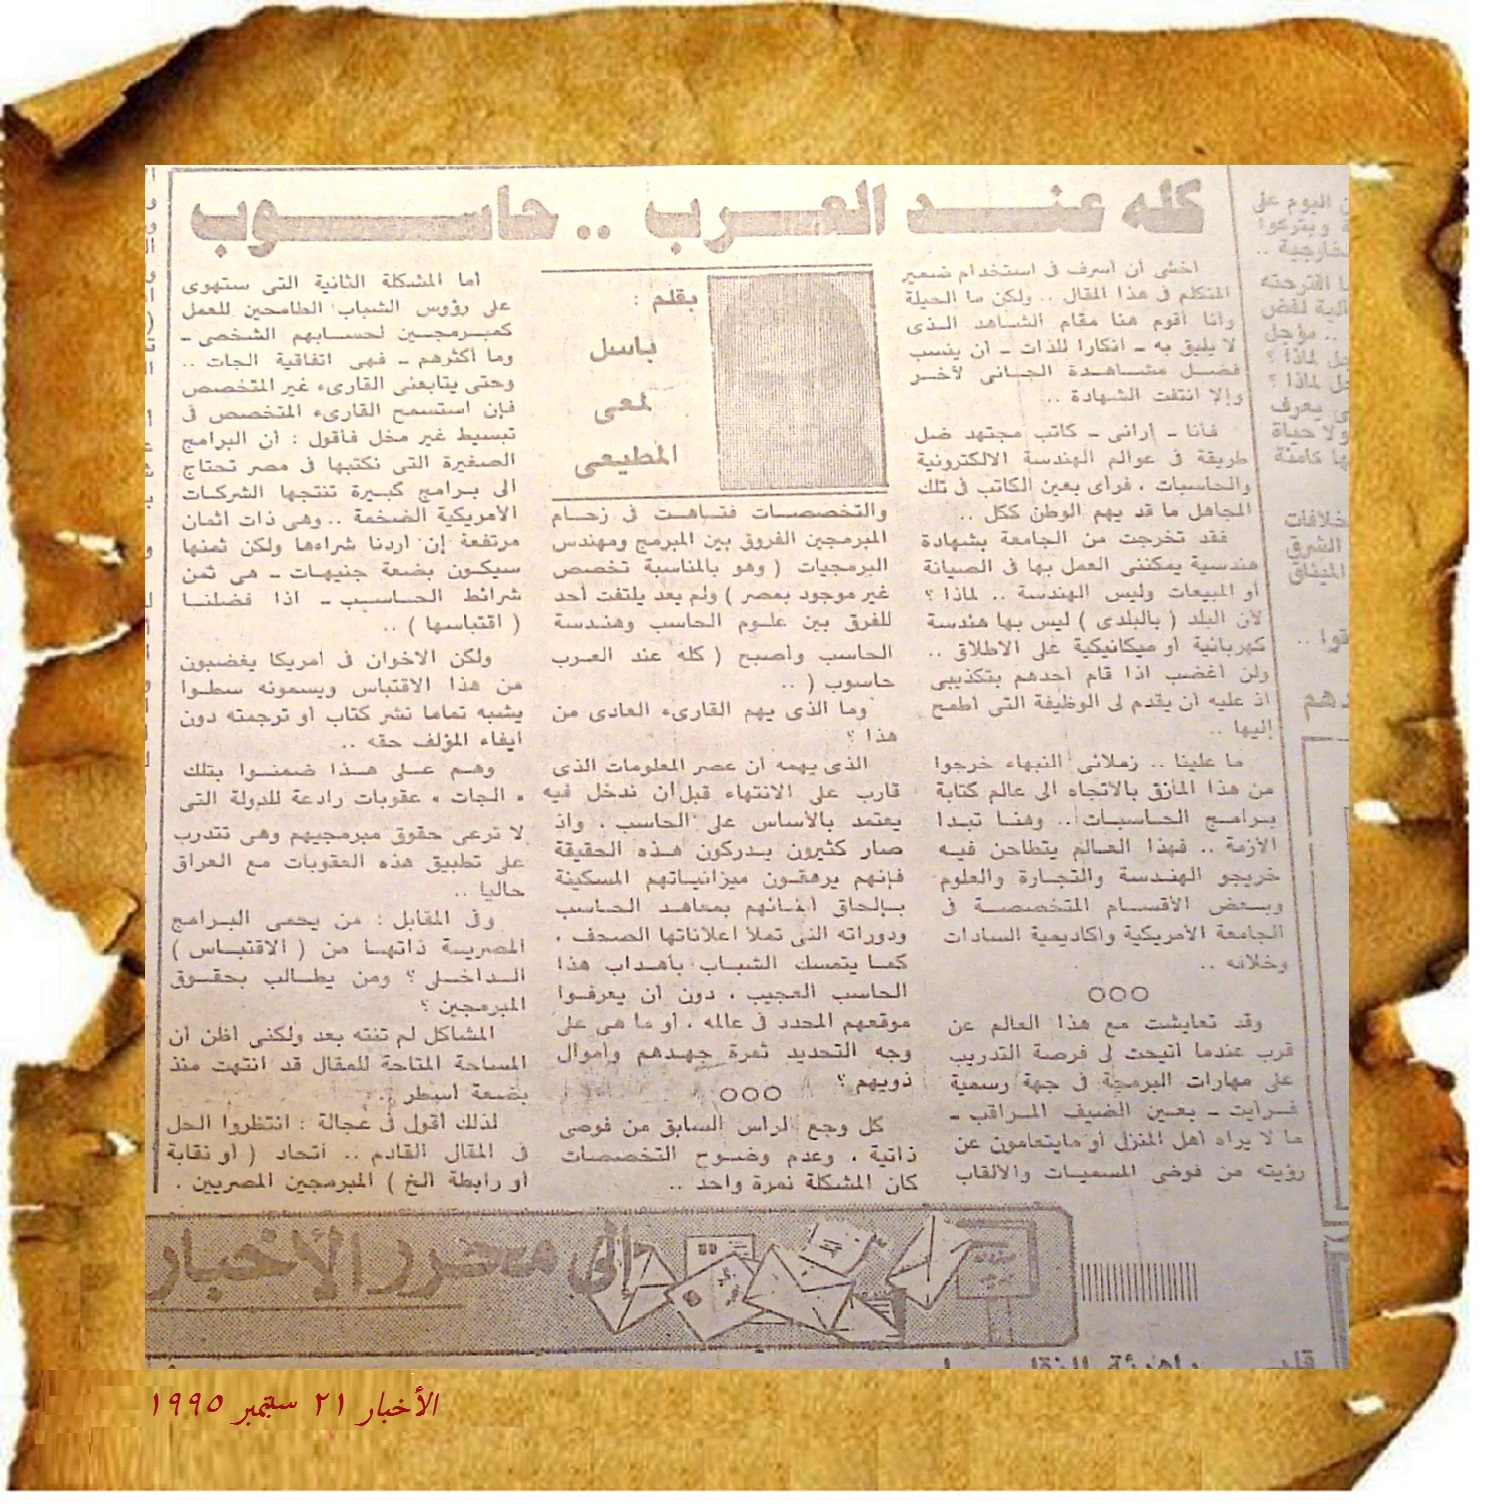 كله عنـــد العـــرب .. حاســـوب
أخشى أن أسرف فى استخدام ضمير
المتكلم فى هذا المقال .. ولكن ما الحيلة
وأنا أقوم هنا مقام الشاهد الذى
لا يليق به ـ انكارا للذات ـ أن ينسب
فضل مشاهدة الجانى لآخر
وإلا انتفت الشهادة ..
فأنا ـ أرانى ـ كاتب مجتهد ضل
طريقة فى عوالم الهندسة الالكترونية
والحاسبات . فرأى بعين الكاتب فى تلك
المجاهل ما قد يهم الوطن ككل ..
فقد تخرجت من الجامعة بشهادة
هندسية يمكننى العمل بها فى الصيانة
أو المبيعات وليس الهندسة .. لماذا ؟
لأن البلد ( بالبلدى ) ليس بها هندسة
كهربائية أو ميكانيكية على الاطلاق ..
ولن أغضب اذا قام أحدهم بتكذيبى
اذ عليه أن يقدم لى الوظيفة التى أطمح
إليها ..
ما علينا .. زملائى النبهاء خرجوا
من هذا المأزق بالاتجاه الى عالم كتابة
برامج الحاسبات .. وهنا تبدا
الأزمة .. فهذا العالم يتطاحن فيه
خريجو الهندسة والتجارة والعلوم
وبعض الأقسام المتخصصة فى
الجامعة الأمريكية واكاديمية السادات
وخلافه ..
○○○
وقد تعايشت مع هذا العالم عن
قرب عندما أتيحت لى فرصة التدريب
على مهارات البرمجة فى جهة رسمية
فرأيت ـ بعين الضيف المراقب ـ
ما لا يراه أهل المنزل أو مايتعامون عن
رؤيته من فوضى المسميات والألقاب
بقلم :
باسل
لمعى
المطيعى
والتخصصات فتاهت فى زحام
المبرمجين الفروق بين المبرمج ومهندس
البرمجيات ( وهو بالمناسبة تخصص
غير موجود بمصر ) ولم يعد يلتفت أحد
للفرق بين علوم الحاسب وهندسة
الحاسب وأصبح ( كله عند العرب
حاسوب ( ..
وما الذى يهم القارىء العادى من
هذا ؟
الذى يهمه أن عصر المعلومات الذى
قارب على الانتهاء قبل أن ندخل فيه
يعتمد بالأساس على الحاسب . واذ
صار كثيرون يدركون هذه الحقيقة
فإنهم يرهقون ميزانياتهم المسكينة
بإلحاق أبنائهم بمعاهد الحاسب
ودوراته التى تملأ اعلاناتها الصحف .
كما يتمسك الشباب بأهداب هذا
الحاسب العجيب . دون أن يعرفوا
موقعهم المحدد فى عالمه . أو ما هى على
وجه التحديد ثمرة جهدهم وأموال
ذويهم ؟
○○○
كل وجع الرأس السابق من فوضى
ذاتية . وعدم وضوح التخصصات
كان المشكلة نمرة واحد ..
أما المشكلة الثانية التى ستهوى
على رؤوس الشباب الطامحين للعمل
كمبرمجين لحسابهم الشخصى ـ
وما أكثرهم ـ فهى اتفاقية الجات ..
وحتى يتابعنى القارىء غير المتخصص
فإن استسمح القارىء المتخصص فى
تبسيط غير مخل فأقول : أن البرامج
الصغيرة التى نكتبها فى مصر تحتاج
الى برامج كبيرة تنتجها الشركات
الأمريكية الضخمة .. وهى ذات اثمان
مرتفعة إن أردنا شراءها ولكن ثمنها
سيكون بضعة جنيهات ـ هى ثمن
شرائط الحاسب ـ اذا فضلنا
( اقتباسها ) ..
ولكن الاخوان فى أمريكا يغضبون
من هذا الاقتباس ويسمونه سطوا
يشبه تماما نشر كتاب أو ترجمته دون
ايفاء المؤلف حقه ..
وهم على هذا ضمنوا بتلك
« الجات » عقوبات رادعة للدولة التى
لا ترعى حقوق مبرمجيهم وهى تتدرب
على تطبيق هذه العقوبات مع العراق
حاليا ..
وفى المقابل : من يحمى البرامج
المصرية ذاتها من ( الاقتباس )
الداخلى ؟ ومن يطالب بحقوق
المبرمجين ؟
المشاكل لم تنته بعد ولكنى أظن أن
المساحة المتاحة للمقال قد انتهت منذ
بضعة أسطر ..
لذلك أقول فى عجالة : انتظروا الحل
فى المقال القادم .. أتحاد ( أو نقابة
أو رابطة الخ ) المبرمجين المصريين .
ن اليوم على
ويتركوا
خارجية ..
ا اقترحته
الية لفض
.. مؤجل
جل لماذا ؟
جل لماذا ؟
ى يعرف
ولا حياة
ها كامنة
خلافات
الشرق
الميثاق
قوا ..
دهم
إلى محرر الأخبار
الأخبار ٢١ سبتمبر ١٩٩٥